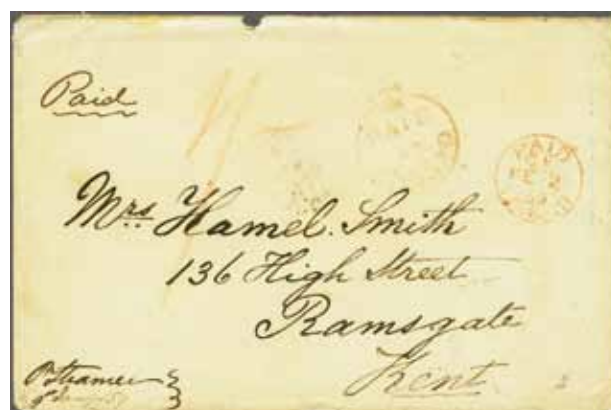 Paid
PAID
Mrs. Hamel Smith
136 High Street
Ramsgate
Kent
P Steamer